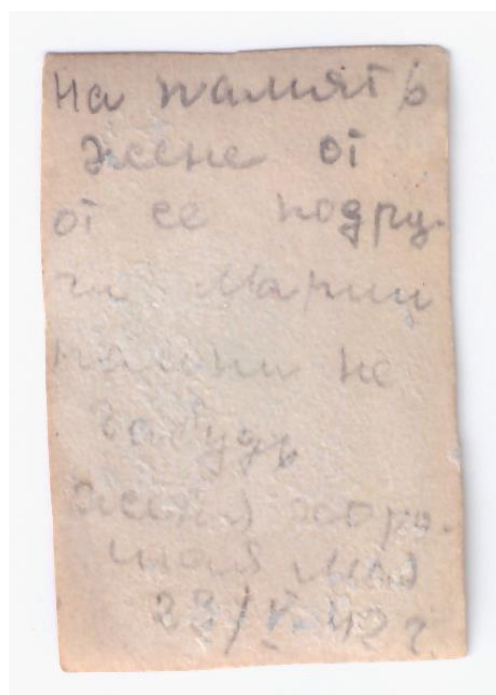 На память
Жене от
от ее подру-
ги Марии
помни не
забудь
Женя хоро-
шая моя
23/V-42 г.